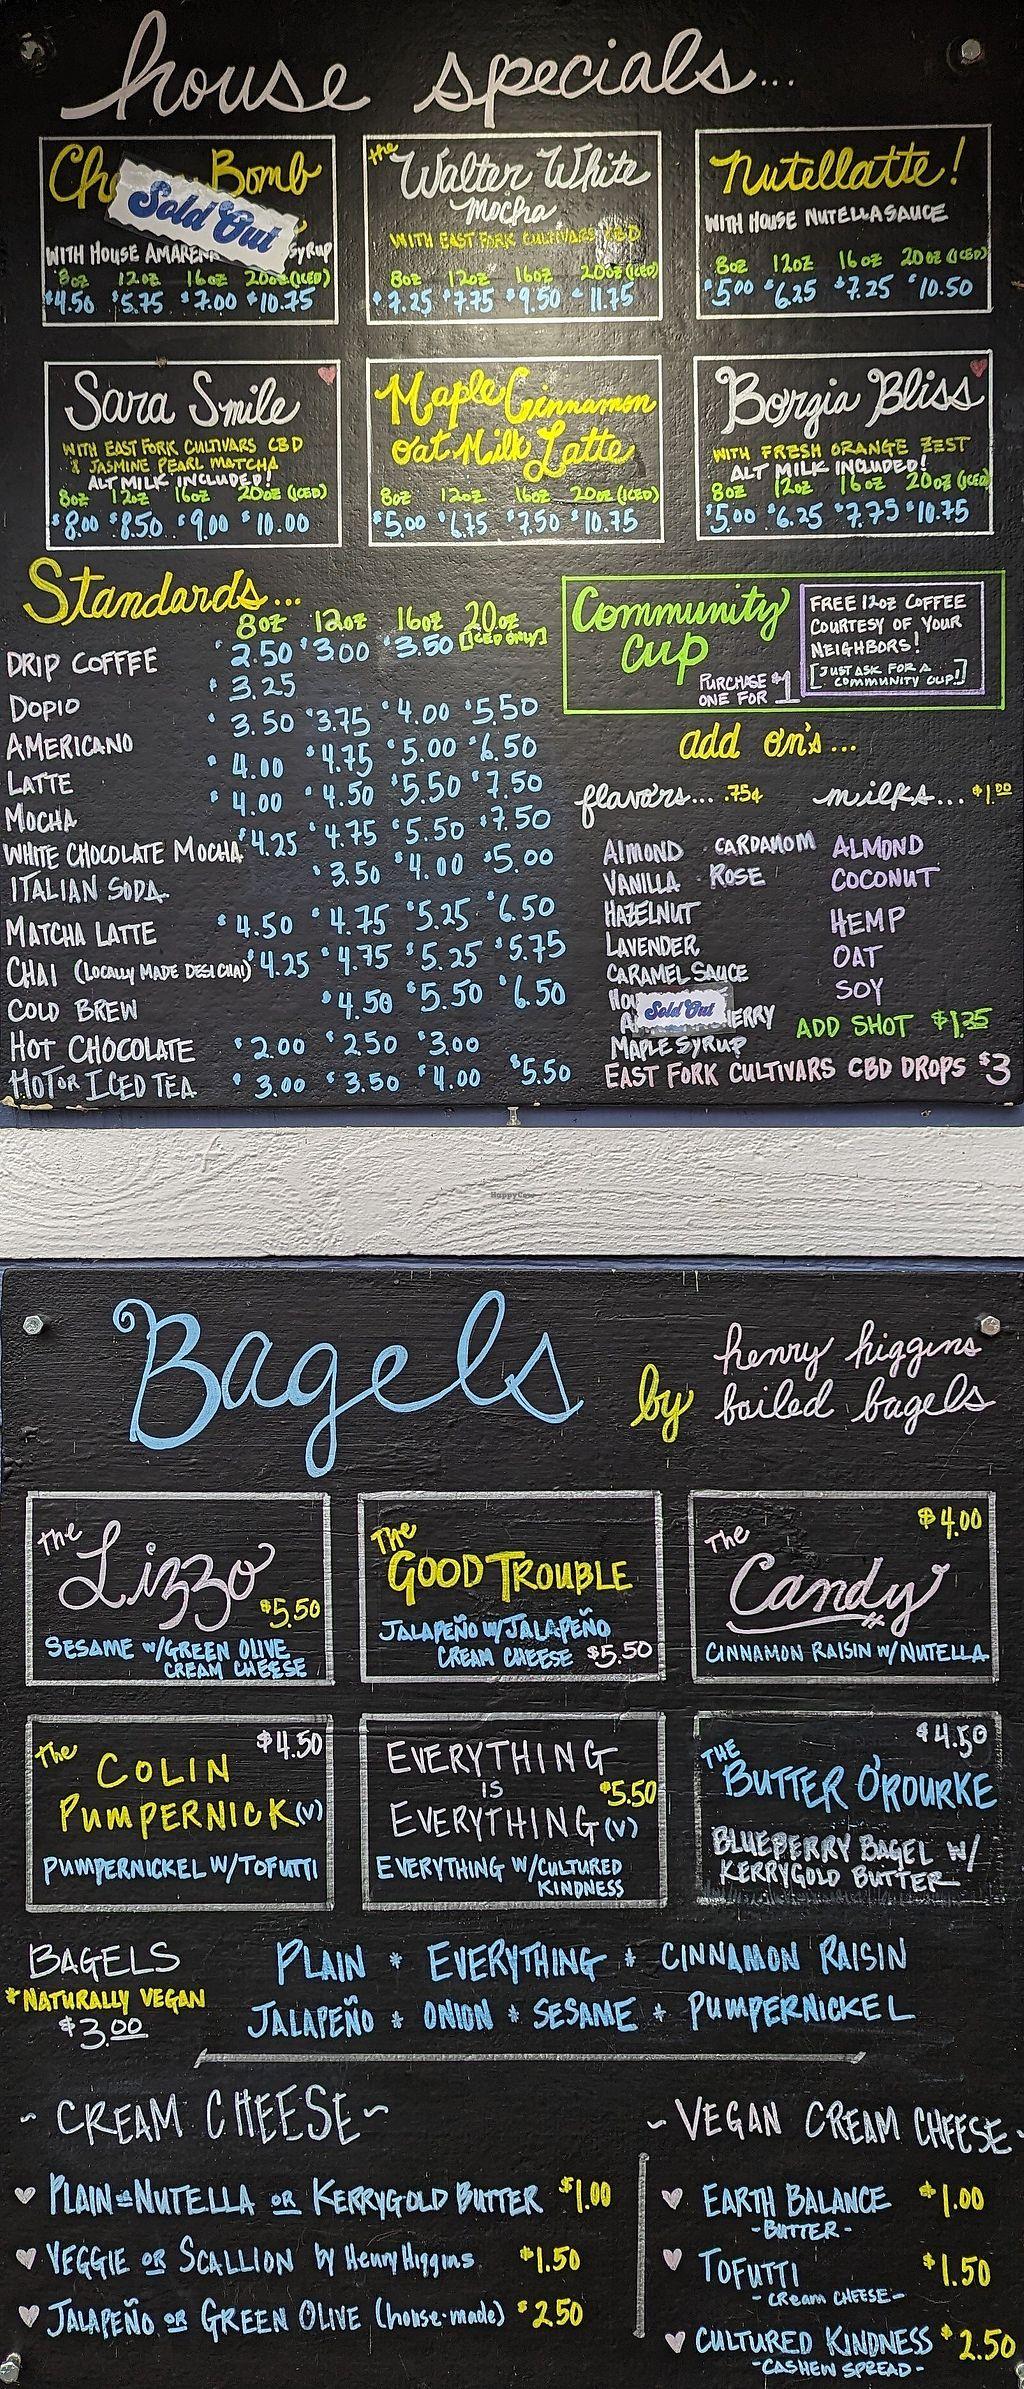 house specials...
Bomb
Sold Out
WITH HOUSE AMARENA SYRUP
8oz 12oz 16oz 20oz (ICED)
$4.50 $5.75 $7.00 $10.75
the Walter White
Mocha
WITH EAST FORK CULTIVARS CBD
8oz 12oz 16oz 20oz (ICED)
$7.25 $7.75 $9.50 $11.75
Nutellatte!
WITH HOUSE NUTELLA SAUCE
8oz 12oz 16oz 20oz (ICED)
$5.00 $6.25 $7.25 $10.50
Sara Smile
WITH EAST FORK CULTIVARS CBD
& JASMINE PEARL MATCHA
ALT MILK INCLUDED!
8oz 12oz 16oz 20oz (ICED)
$8.00 $8.50 $9.00 $10.00
Maple Cinnamon
Oat Milk Latte
8oz 12oz 16oz 20oz (ICED)
$5.00 $6.75 $7.50 $10.75
Borgia Bliss
WITH FRESH ORANGE ZEST
ALT MILK INCLUDED!
8oz 12oz 16oz 20oz (ICED)
$5.00 $6.25 $7.75 $10.75
Standards...
8oz 12oz 16oz 20oz
[ICED ONLY]
DRIP COFFEE $2.50 $3.00 $3.50
DOPIO $3.25
AMERICANO $3.50 $3.75 $4.00 $5.50
LATTE $4.00 $4.75 $5.00 $6.50
MOCHA $4.00 $4.50 $5.50 $7.50
WHITE CHOCOLATE MOCHA $4.25 $4.75 $5.50 $7.50
ITALIAN SODA $3.50 $4.00 $5.00
MATCHA LATTE $4.50 $4.75 $5.25 $6.50
CHAI (LOCALLY MADE DESI CHAI) $4.25 $4.75 $5.25 $5.75
COLD BREW $4.50 $5.50 $6.50
HOT CHOCOLATE $2.00 $2.50 $3.00
HOT OR ICED TEA $3.00 $3.50 $4.00 $5.50
Community
Cup
PURCHASE
ONE FOR $1
FREE 12oz COFFEE
COURTESY OF YOUR
NEIGHBORS!
[JUST ASK FOR A
COMMUNITY CUP!]
add on's...
flavors... .75¢
ALMOND CARDAMOM
VANILLA ROSE
HAZELNUT
LAVENDER
CARAMEL SAUCE
Sold Out
MAPLE SYRUP
milks... $1.00
ALMOND
COCONUT
HEMP
OAT
SOY
ADD SHOT $1.35
EAST FORK CULTIVARS CBD DROPS $3
HappyCow
Bagels
by henry higgins
boiled bagels
The Lizzo
$5.50
SESAME W/GREEN OLIVE
CREAM CHEESE
The
GOOD TROUBLE
JALAPEÑO W/JALAPEÑO
CREAM CHEESE $5.50
The $4.00
Candy
CINNAMON RAISIN W/NUTELLA
The $4.50
COLIN
PUMPERNICK (V)
PUMPERNICKEL W/TOFUTTI
EVERYTHING
IS $5.50
EVERYTHING (V)
EVERYTHING W/CULTURED
KINDNESS
$4.50
THE
BUTTER O'ROURKE
BLUEBERRY BAGEL W/
KERRYGOLD BUTTER
BAGELS
*NATURALLY VEGAN
$3.00
PLAIN * EVERYTHING * CINNAMON RAISIN
JALAPEÑO * ONION * SESAME * PUMPERNICKEL
~ CREAM CHEESE ~
PLAIN or NUTELLA OR KERRYGOLD BUTTER $1.00
VEGGIE OR SCALLION by Henry Higgins $1.50
JALAPEÑO OR GREEN OLIVE (house-made) $2.50
~ VEGAN CREAM CHEESE ~
EARTH BALANCE $1.00
-BUTTER-
TOFUTTI $1.50
-CREAM CHEESE-
CULTURED KINDNESS $2.50
-CASHEW SPREAD-